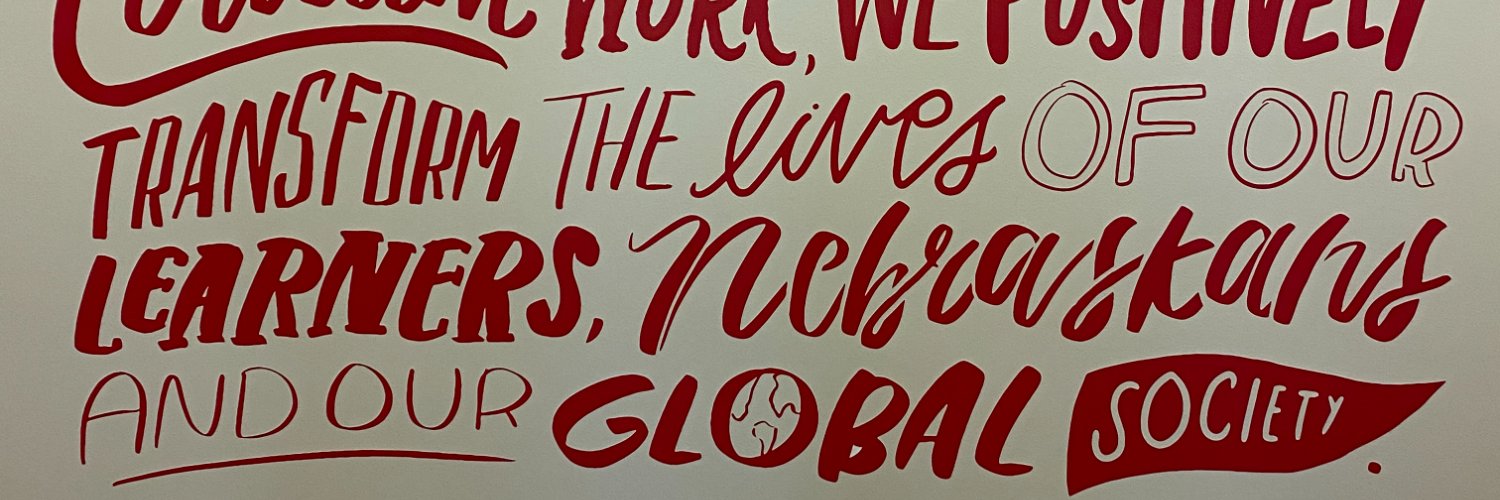 WORK, WE POSITIVELY
TRANSFORM THE lives OF OUR
LEARNERS, Nebraskans
AND OUR GLOBAL SOCIETY.